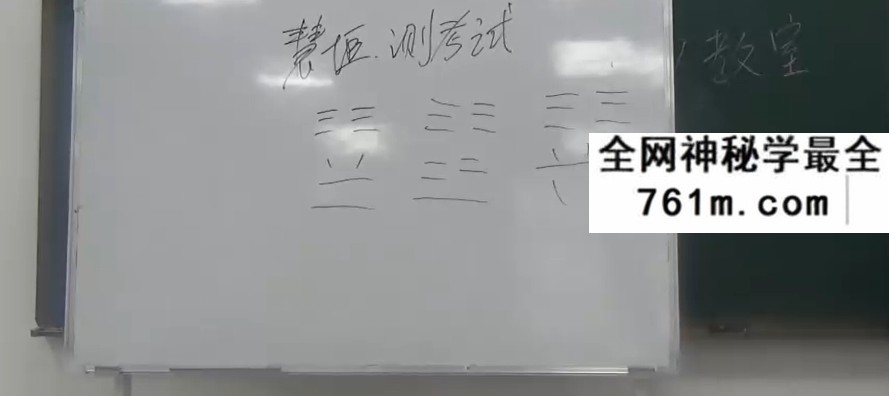 慧垣.测考试
教室
全网神秘学最全
761m.com